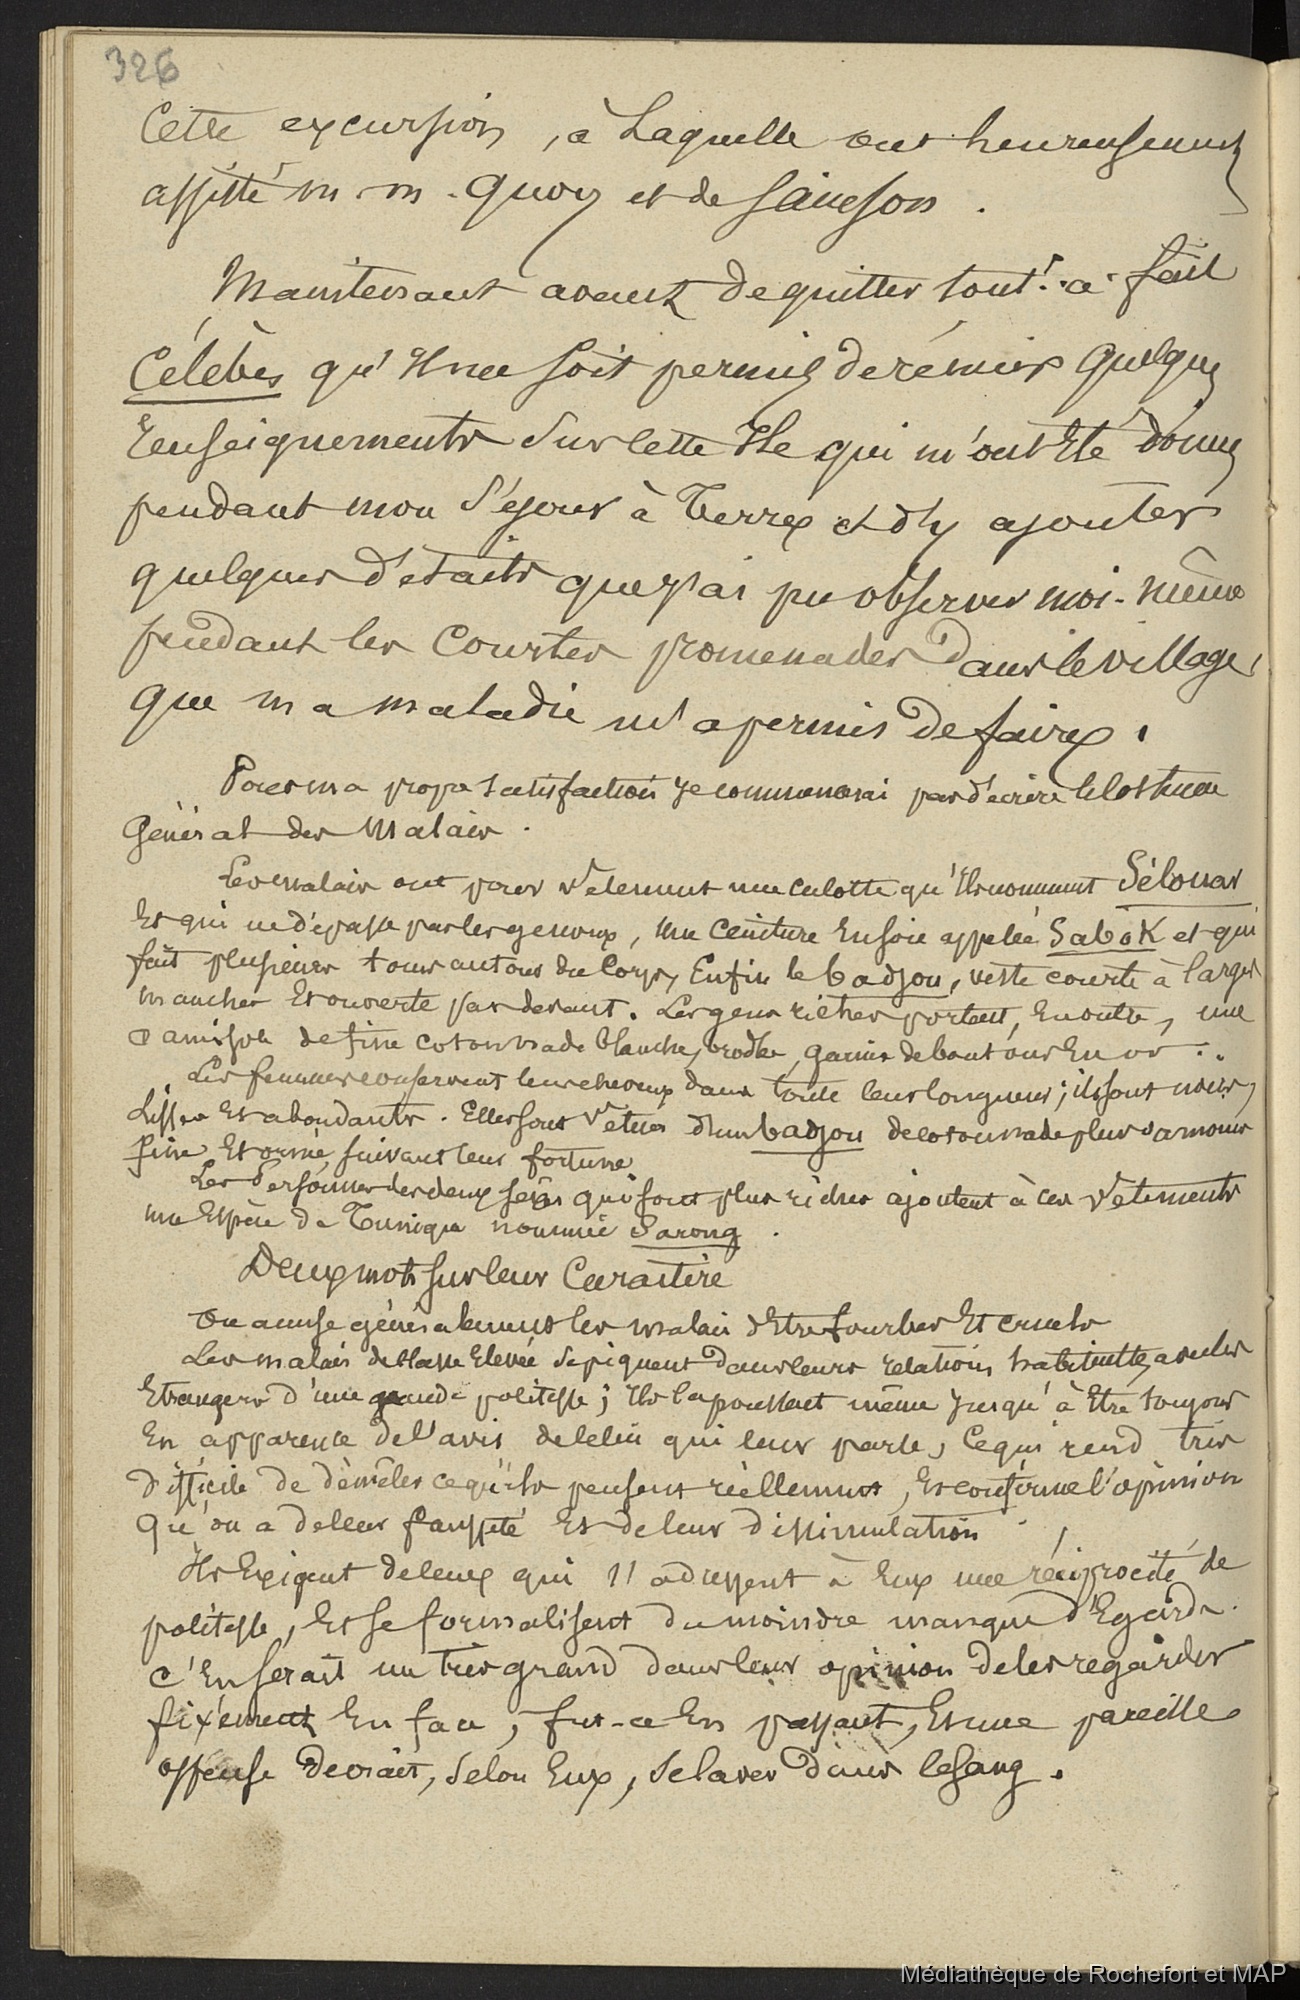 326
Cette excursion, à Laquelle ont heureusement
assisté m. m. Quoy et de Sainson.
Maintenant avant de quitter tout-à-fait
Célèbes qu'il me soit permis de réunir quelques
renseignements sur cette Ile qui m'ont Eté donnés
pendant mon séjour à Terre et d'y ajouter
quelques détails que j'ai pu observer moi-même
pendant les Courtes promenades dans le village,
que ma maladie m'a permis de faire.
Pour ma propre satisfaction je commencerai par décrire le Costume
Général des Malais.
Les malais ont pour vêtement une culotte qu'Ils nomment Sélouar
Et qui ne dépasse pas les genoux, une Ceinture En soie appelée SaboK et qui
fait plusieurs tours autour du Corps, Enfin le badjou, veste courte à larges
manches Et ouverte par devant. Les gens riches portent, En outre, une
Camisole de fine cotonnade blanche, brodée, garnie de boutons En or.
Les femmes conservent leurs cheveux dans toute leur longueur; ils sont noirs,
Lisses Et abondants. Elles sont vêtues d'un badjou de cotonnade plus ou moins
fine Et ornée, suivant leur fortune.
Les Personnes des deux sexes qui sont plus riches ajoutent à ces vêtements
une Espèce de Tunique nommée Sarong.
Deux mots sur leur Caractère
On accuse généralement les malais d'Etre fourbes Et cruels
Les malais de Classe Elevée se piquent dans leurs relations habituelles avec les
Etrangers d'une grande politesse; Ils la poussent même jusqu'à Etre toujours
En apparence de l'avis de celui qui leur parle, Ce qui rend très
difficile de démêler ce qu'ils pensent réellement, Et confirme l'opinion
qu'on a de leur fausseté Et de leur dissimulation.
Ils Exigent de ceux qui s'adressent à Eux une réciprocité de
politesse, Et se formalisent du moindre manque d'Egards.
C'En serait un très grand dans leur opinion de les regarder
fixément En face, fut-ce En passant, Et une pareille
offense devrait, Selon Eux, se laver dans le Sang.
Médiathèque de Rochefort et MAP